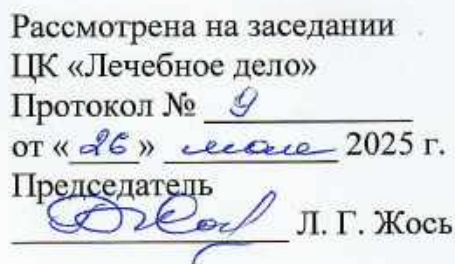 Рассмотрена на заседании
ЦК «Лечебное дело»
Протокол № 9
от «26» мая 2025 г.
Председатель
Л. Г. Жось